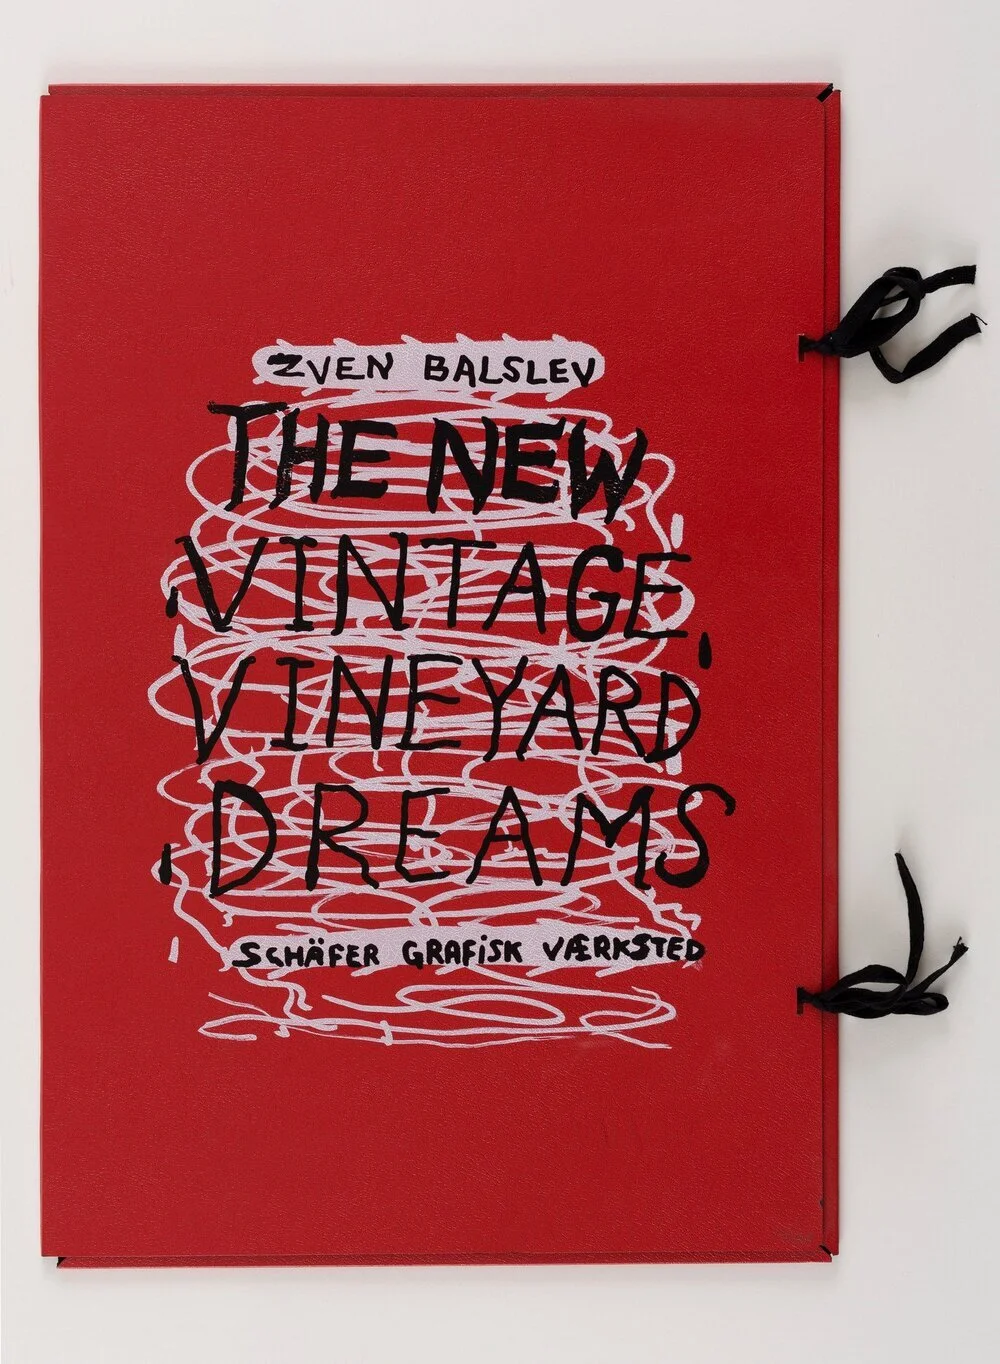 ZVEN BALSLEV
THE NEW
VINTAGE
VINEYARD
DREAMS
SCHÄFER GRAFiSK VÆRKSTED